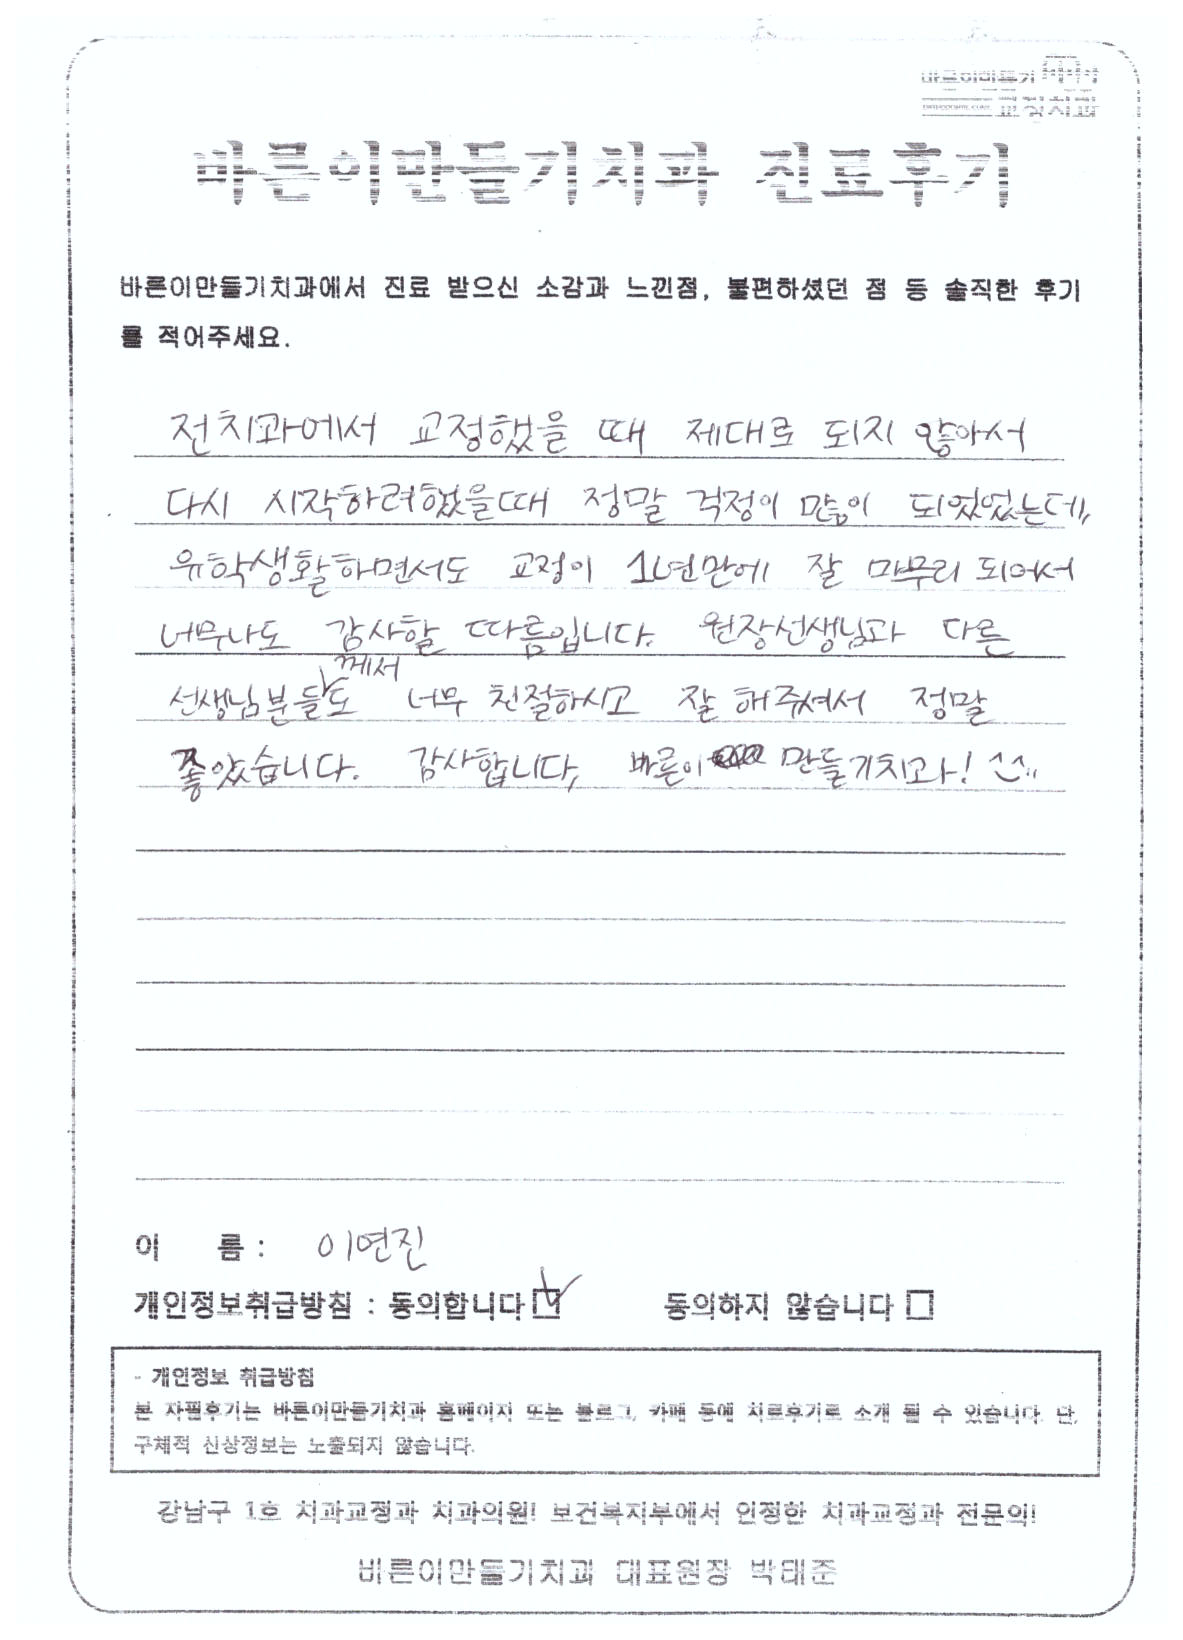 바른이만들기
교정치과
바른이만들기치과 진료후기
바른이만들기치과에서 진료 받으신 소감과 느낀점, 불편하셨던 점 등 솔직한 후기
를 적어주세요.
전치과에서 교정했을 때 제대로 되지 않아서
다시 시작하려했을때 정말 걱정이 많이 되었었는데,
유학생활하면서도 교정이 1년만에 잘 마무리 되어서
너무나도 감사할 따름입니다. 원장선생님과 다른
께서
선생님분들도 너무 친절하시고 잘 해주셔서 정말
좋았습니다. 감사합니다, 바른이 만들기치과! ^^"
이 름 : 이연진
개인정보취급방침 : 동의합니다 동의하지 않습니다
- 개인정보 취급방침
본 자필후기는 바른이만들기치과 홈페이지 또는 블로그, 카페 등에 치료후기로 소개 될 수 있습니다. 단,
구체적 신상정보는 노출되지 않습니다.
강남구 1호 치과교정과 치과의원! 보건복지부에서 인정한 치과교정과 전문의!
바른이만들기치과 대표원장 박태준